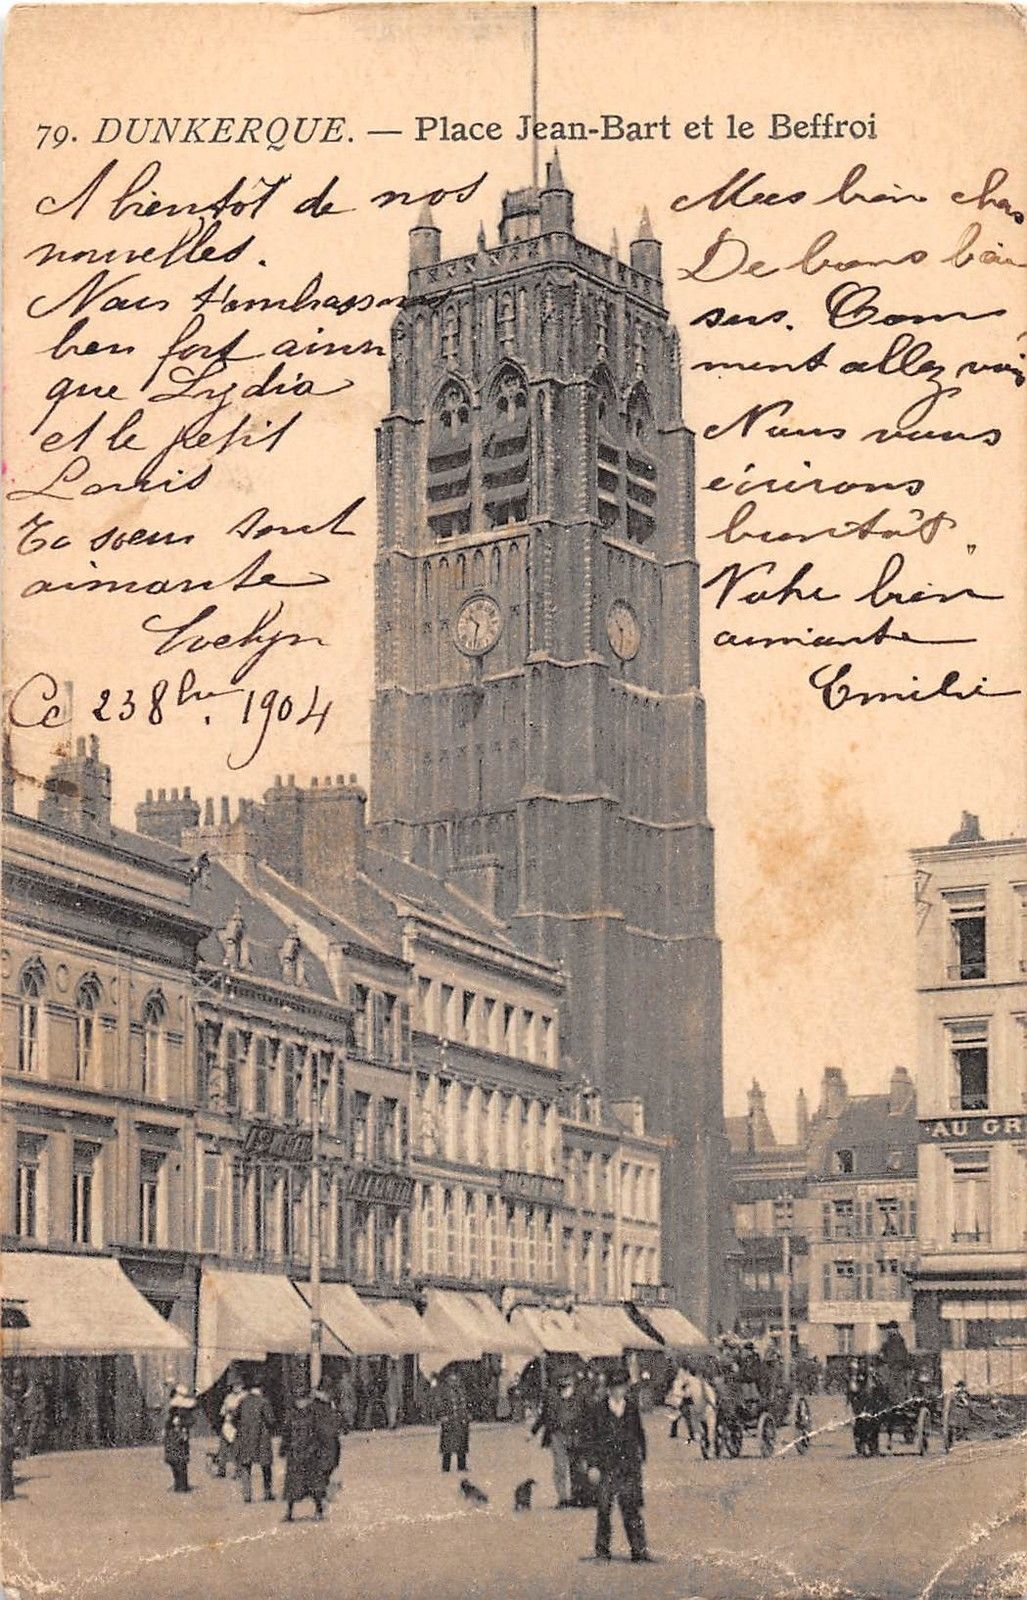 79. DUNKERQUE. — Place Jean-Bart et le Beffroi
A bientôt de nos
nouvelles.
Nous t'embrassons
bien fort ainsi
que Lydia
et le petit
Louis
Ta soeur tout
aimante
Evelyn
Ce 23 8bre. 1904
Mes bien chers
De bons bai
sers. Com
ment allez vous
Nous vous
écrirons
bientôt.
Votre bien
aimante
Emilie
AU GR